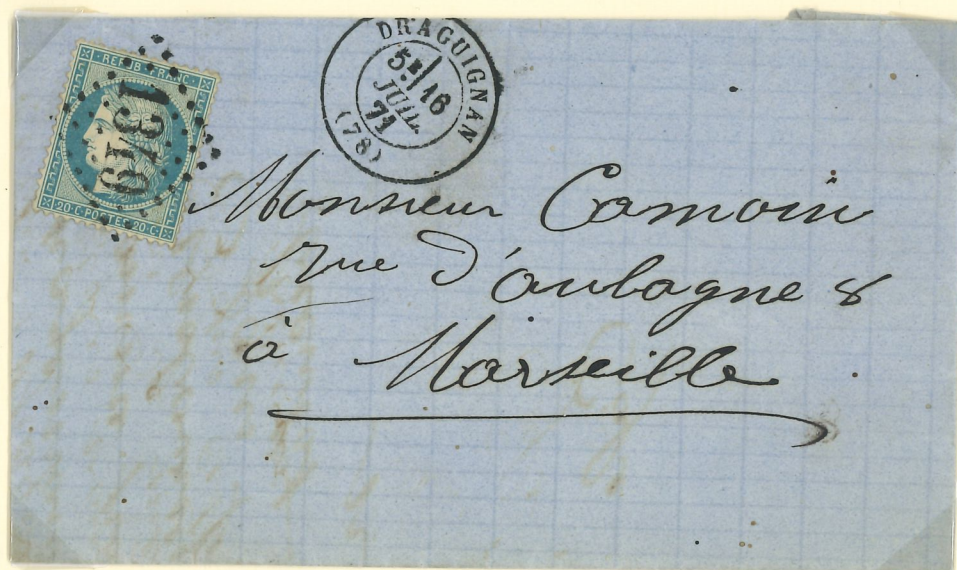 REPUB·FRANC·
1349
20·C·POSTES·20·C·
DRAGUIGNAN
5E/16
JUIL.
71
(78)
Monsieur Camoin
rue d'aubagne 8
à Marseille